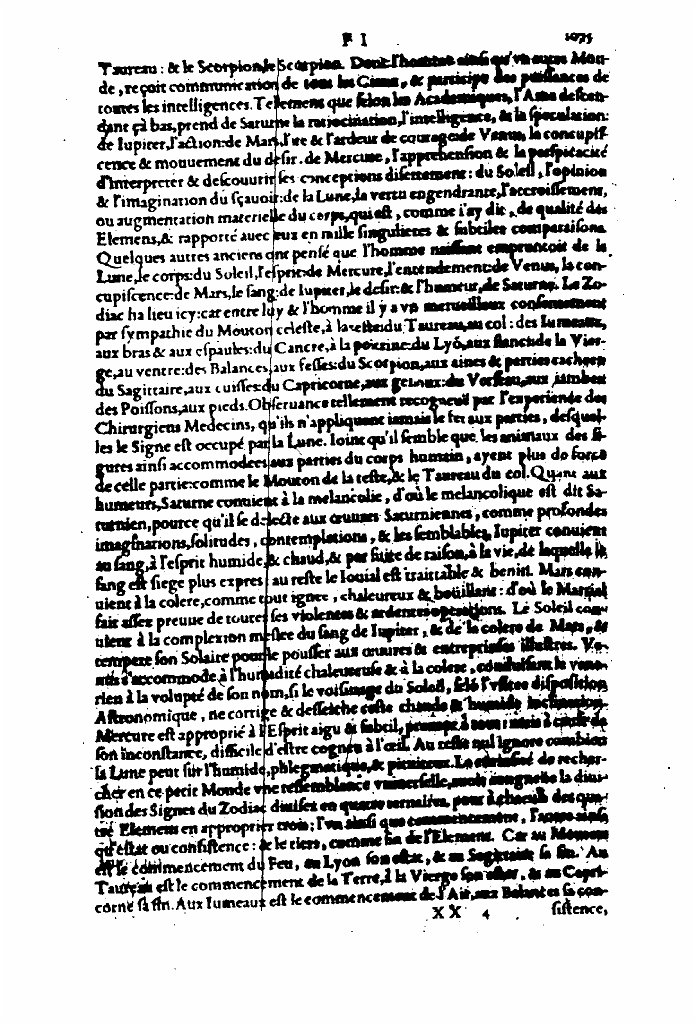 F I 1075
Taureau: & le Scorpion, le Scorpion. Dont l'homme ainsi qu'vn autre Mon-
de, reçoit communication de tous les Cieux, & participe des puissances de
toutes les intelligences. Tellement que selon les Academiques, l'Ame descen-
dant çà bas, prend de Saturne la ratiocination, l'intelligence, & la speculation:
de Iupiter, l'action: de Mars, l'ire & l'ardeur de courage: de Venus, la concupis-
cence & mouuement du desir. de Mercure, l'apprehension & la perspicacité
d'interpreter & descouurir ses conceptions disertement: du Soleil, l'opinion
& l'imagination du sçauoir: de la Lune, la vertu engendrante, l'accroissement,
ou augmentation materielle du corps, qui est, comme i'ay dit, de qualité des
Elemens, & rapporté auec eux en mille singulieres & subtiles comparaisons.
Quelques autres anciens ont pensé que l'homme naissant empruntoit de la
Lune, le corps: du Soleil, l'esprit: de Mercure, l'entendement: de Venus, la con-
cupiscence: de Mars, le sang: de Iupiter, le desir: & l'humeur, de Saturne. Le Zo-
diac ha lieu icy: car entre luy & l'homme il y a vn merueilleux consentement
par sympathie du Mouton celeste, à la teste: du Taureau, au col: des Iumeaux,
aux bras & aux espaules: du Cancre, à la poictrine: du Lyõ, aux flancs: de la Vier-
ge, au ventre: des Balances, aux fesses: du Scorpion, aux aines & parties cachees:
du Sagittaire, aux cuisses: du Capricorne, aux genoux: du Verseau, aux iambes:
des Poissons, aux pieds. Obseruance tellement recogneuë par l'experience des
Chirurgiens Medecins, qu'ils n'appliquent iamais le fer aux parties, desquel-
les le Signe est occupé par la Lune. Ioint qu'il semble que les animaux des fi-
gures ainsi accommodees aux parties du corps humain, ayent plus de force
de celle partie: comme le Mouton de la teste, & le Taureau du col. Quant aux
humeurs, Saturne conuient à la melancolie, d'où le melancolique est dit Sa-
turnien, pource qu'il se delecte aux œuures Saturniennes, comme profondes
imaginations, solitudes, contemplations, & les semblables, Iupiter conuient
au sang, à l'esprit humide & chaud, & par suite de raison, à la vie, de laquelle le
sang est siege plus expres: au reste le Iouial est traittable & benin. Mars con-
uient à la colere, comme tout ignee, chaleureux & bouillant: d'où le Martial
fait assez preuue de toutes ses violences & ardentes operations. Le Soleil con-
uient à la complexion meslee du sang de Iupiter, & de la colere de Mars, &
tempere son Solaire pour le pousser aux œuures & entreprises illustres. Ve-
nus s'accommode à l'humidité chaleureuse & à la colere, conduisant le vene-
rien à la volupté de son nom, si le voisinage du Soleil, selõ l'vsitee disposition
Astronomique, ne corrige & desseiche ceste chaude & humide inclination.
Mercure est approprié à l'Esprit aigu & subtil, prompt à tout: mais à cause de
son inconstance, difficile d'estre cogneu à l'œil. Au reste nul ignore combien
la Lune peut sur l'humide, phlegmatique, & pituiteux. La curiosité de recher-
cher en ce petit Monde vne ressemblance vniuerselle, la diui-
sion des Signes du Zodiac diuisez en quatre ternaires, pour à chacun des qua-
tre Elemens en approprier trois: l'vn ainsi que commencement, l'autre ainsi
qu'estat ou consistence: & le tiers, comme fin de l'Element. Car au Mouton
est le commencement du Feu, au Lyon son estat, & au Sagittaire sa fin. Au
Taureau est le commencement de la Terre, à la Vierge son estat, & au Capri-
corne sa fin. Aux Iumeaux est le commencement de l'Air, aux Balances sa con-
XX 4 sistence,